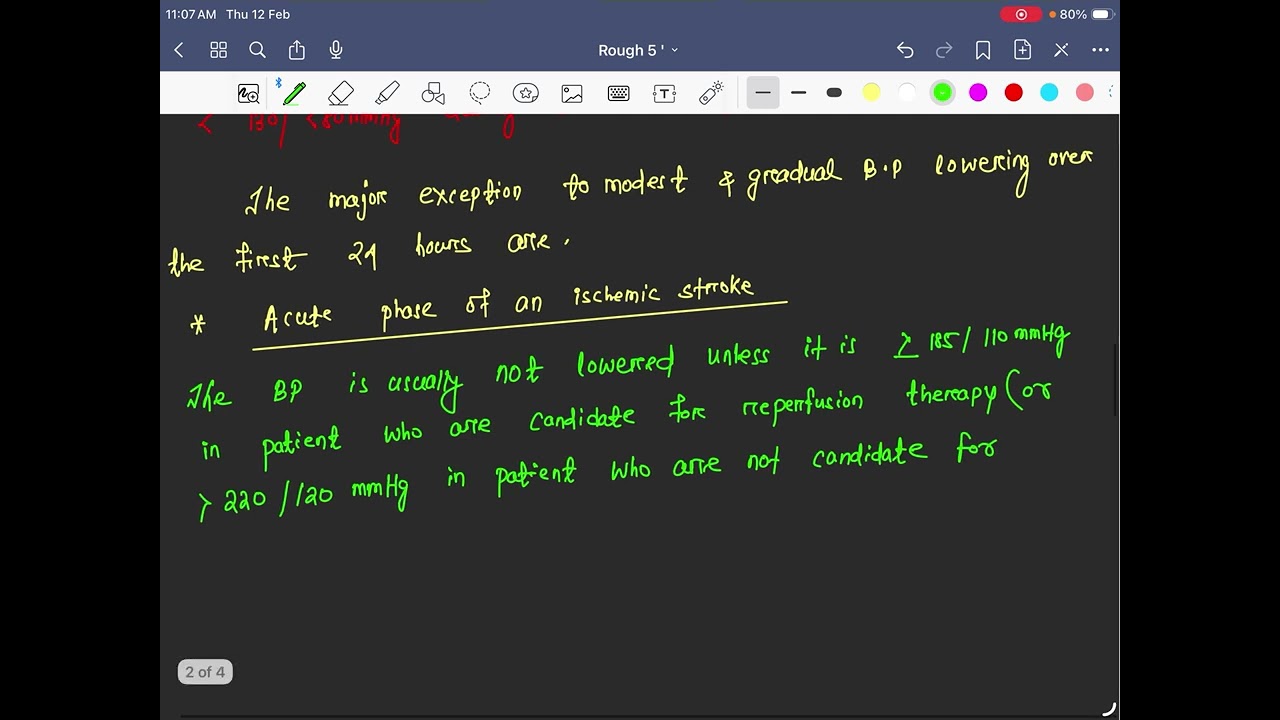 11:07 AM Thu 12 Feb
80%
Rough 5 '
< 130/ <80 mmHg
The major exception to modest & gradual B.P lowering over
the first 24 hours are.
* Acute phase of an ischemic stroke
The BP is usually not lowered unless it is ≥ 185/110 mmHg
in patient who are candidate for reperfusion therapy (or
> 220/120 mmHg in patient who are not candidate for
2 of 4